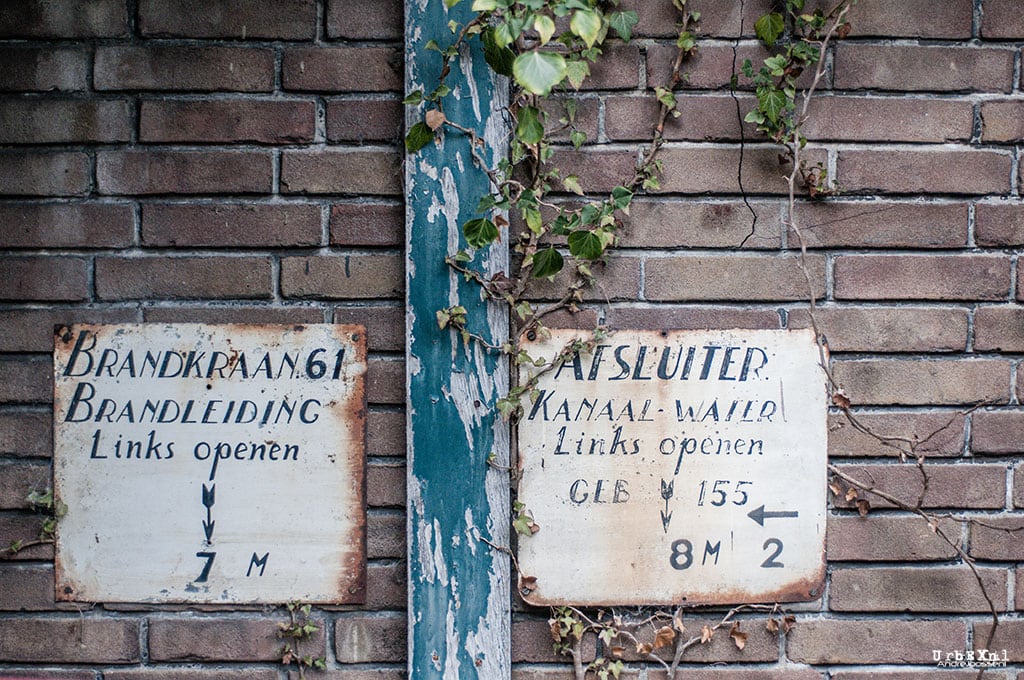 BRANDKRAAN.61
BRANDLEIDING
Links openen
7 M
AFSLUITER
KANAAL-WATER
Links openen
GEB 155
8 M 2
UrbEXnl
AndreJoosseNL